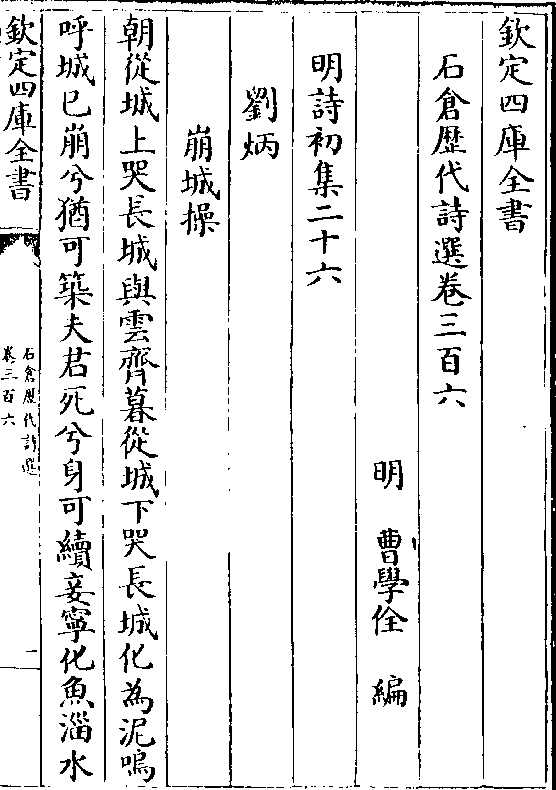 欽定四庫全書
石倉歴代詩選卷三百六
明 曹學佺 編
明詩初集二十六
劉炳
崩城操
朝從城上哭長城與雲齊暮從城下哭長城化為泥嗚
呼城已崩兮猶可築夫君死兮身可續妾寧化魚淄水
欽定四庫全書
石倉歴代詩選
卷三百六
一